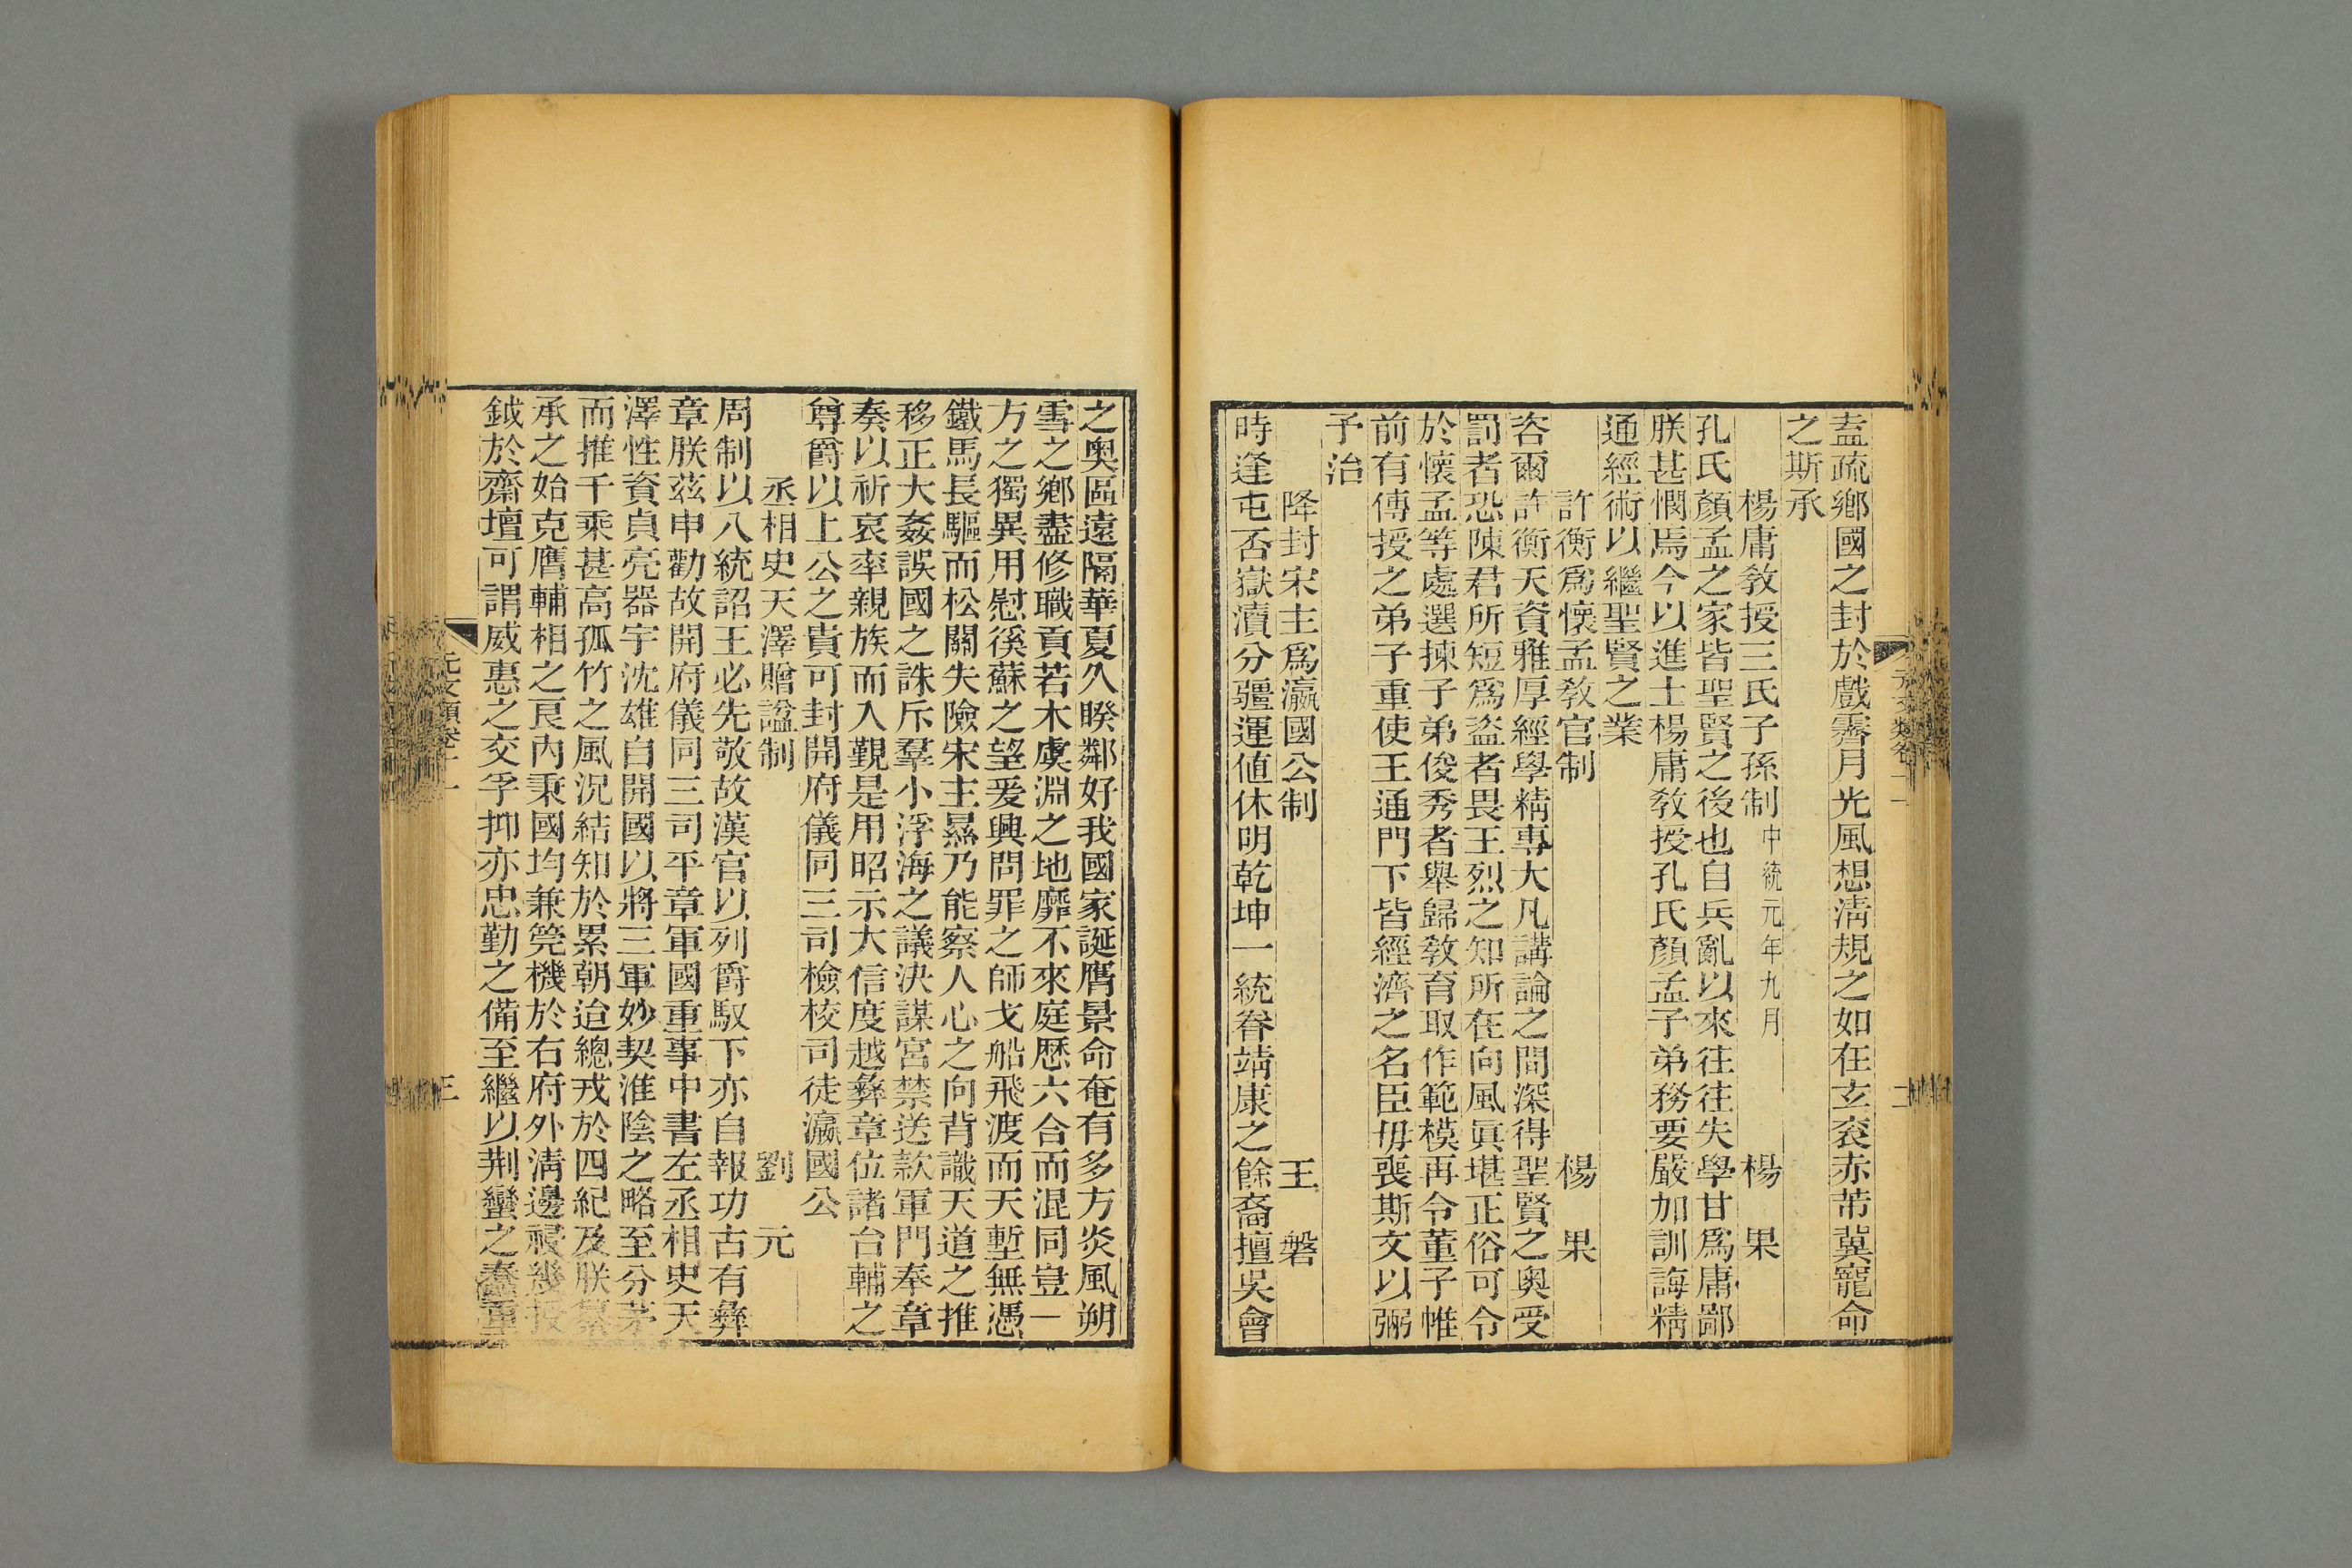 盍疏鄉國之封於戲霽月光風想清規之如在玄袞赤芾冀寵命
之斯承
楊庸敎授三氏子孫制中統元年九月 楊果
孔氏顏孟之家皆聖賢之後也自兵亂以來往往失學甘爲庸鄙
朕甚憫焉今以進士楊庸敎授孔氏顏孟子弟務要嚴加訓誨精
通經術以繼聖賢之業
許衡爲懷孟敎官制 楊果
咨爾許衡天資雅厚經學精專大凡講論之間深得聖賢之奥受
罰者恐陳君所短爲盜者畏王烈之知所在向風眞堪正俗可令
於懷孟等處選揀子弟俊秀者舉歸敎育取作範模再令董子帷
前有傳授之弟子重使王通門下皆經濟之名臣毋喪斯文以弼
予治
降封宋主爲瀛國公制 王磐
時逢屯否嶽瀆分疆運値休明乾坤一統眷靖康之餘裔擅吳會
元文類卷十一 二
之奥區遠隔華夏久睽鄰好我國家誕膺景命奄有多方炎風朔
雪之鄉盡修職貢若木虞淵之地靡不來庭歷六合而混同豈一
方之獨異用慰徯蘇之望爰興問罪之師戈船飛渡而天塹無憑
鐵馬長驅而松關失險宋主㬎乃能察人心之向背識天道之推
移正大姦誤國之誅斥羣小浮海之議決謀宮禁送款軍門奉章
奏以祈哀率親族而入覲是用昭示大信度越彝章位諸台輔之
尊爵以上公之貴可封開府儀同三司檢校司徒瀛國公
丞相史天澤贈諡制 劉元
周制以八統詔王必先敬故漢官以列爵馭下亦自報功古有彝
章朕茲申勸故開府儀同三司平章軍國重事中書左丞相史天
澤性資貞亮器宇沈雄自開國以將三軍妙契淮陰之略至分茅
而推千乘甚高孤竹之風況結知於累朝迨總戎於四紀及朕纂
承之始克膺輔相之良內秉國均兼筦機於右府外淸邊祲幾授
鉞於齋壇可謂威惠之交孚抑亦忠勤之備至繼以荆蠻之蠢重
元文類卷十一 三